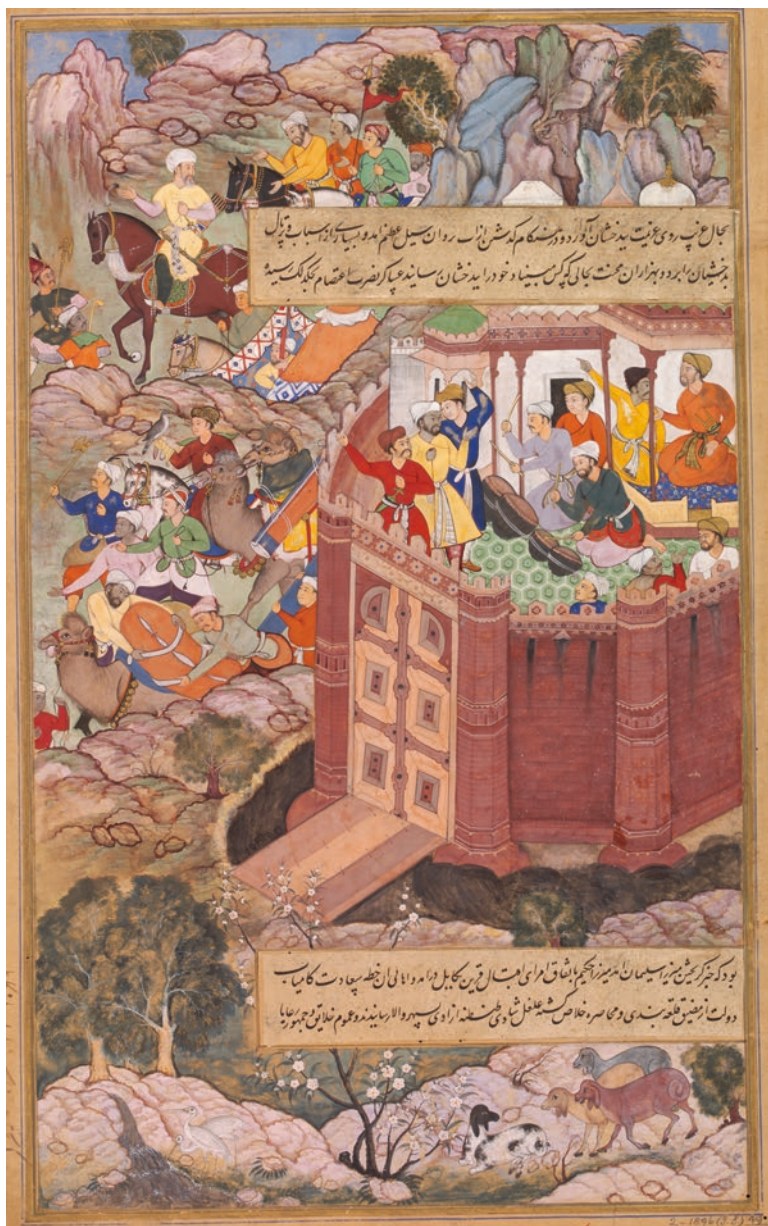 بحال عزیب روی عزیمت ببدخشان آورد و در هنگام گذشتن از آب روان سیل عظیم آمد و بسیاری از اسباب و پرتال
بدخشیان را برد و بهزاران محنت بجالی که کس مبیناد خود را ببدخشان رسانید عساکر نصرت اعتصام بجلکه رسیده
بود که خبر گریختن میرزا سلیمان آمد میرزا حکیم باتفاق امرای اقبال قرین بکابل درآمد و اهالی آن خطه سعادت کامیاب
دولت از مضیق قلعه بندی و محاصره خلاص گشته غلغل شادی و طنطنه آزادی بسپهر والا رسانیدند و عموم خلایق و جمهور رعایا
2-1896 (I.S.)